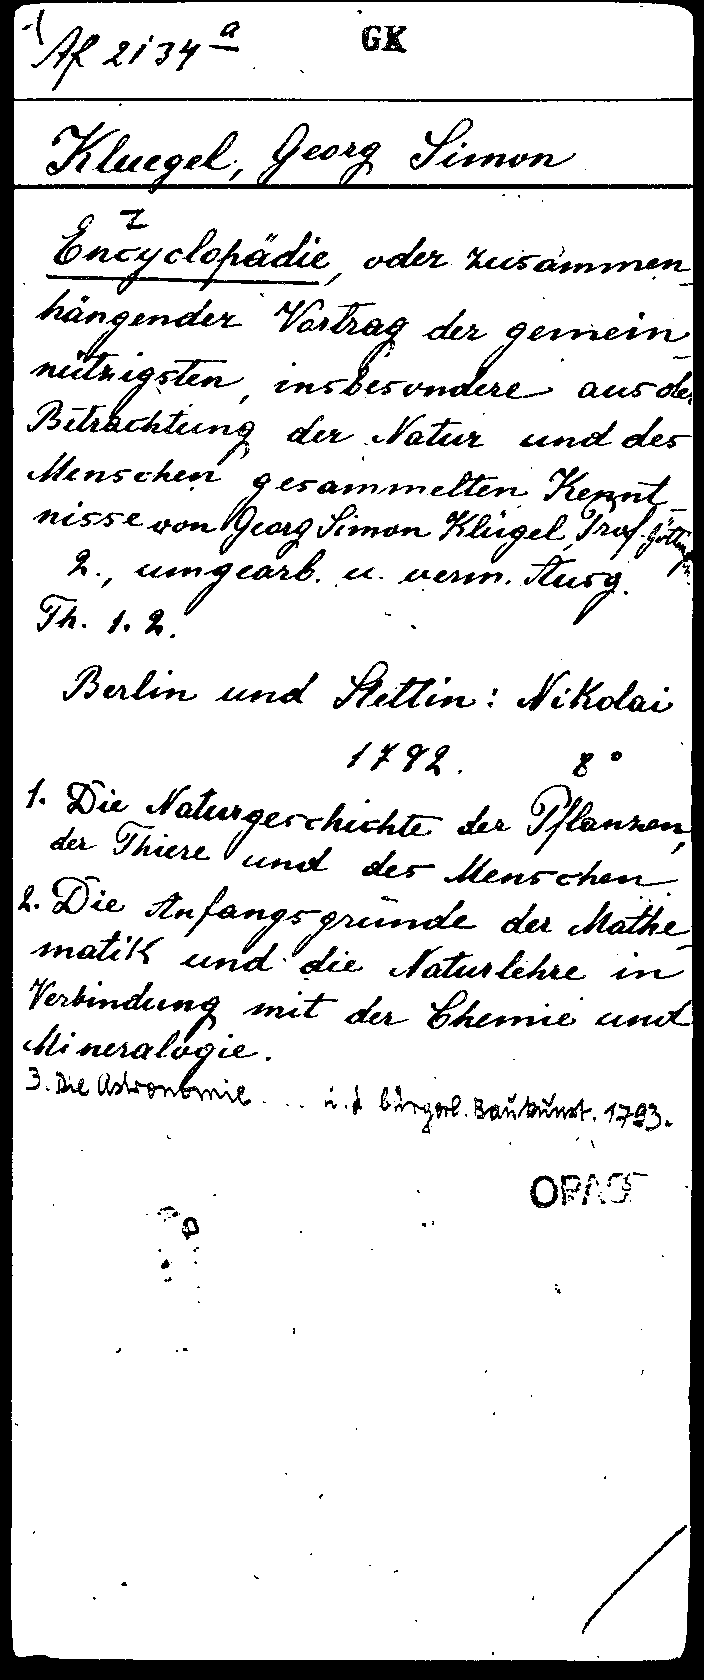 Af 2134 a
GK
Kluegel, Georg Simon
z
Encyclopädie, oder zusammen-
hängender Vortrag der gemein-
nützigsten, insbesondere aus der
Betrachtung der Natur und des
Menschen gesammelten Kennt-
nisse von Georg Simon Klügel, Prof.
2., umgearb. u. verm. Ausg.
Th. 1. 2.
Berlin und Stettin: Nikolai
1792. 8°
1. Die Naturgeschichte der Pflanzen,
der Thiere und des Menschen
2. Die Anfangsgründe der Mathe-
matik und die Naturlehre in
Verbindung mit der Chemie und
Mineralogie.
3. Die Astronomie ... u. d bürgerl. Baukunst. 1793.